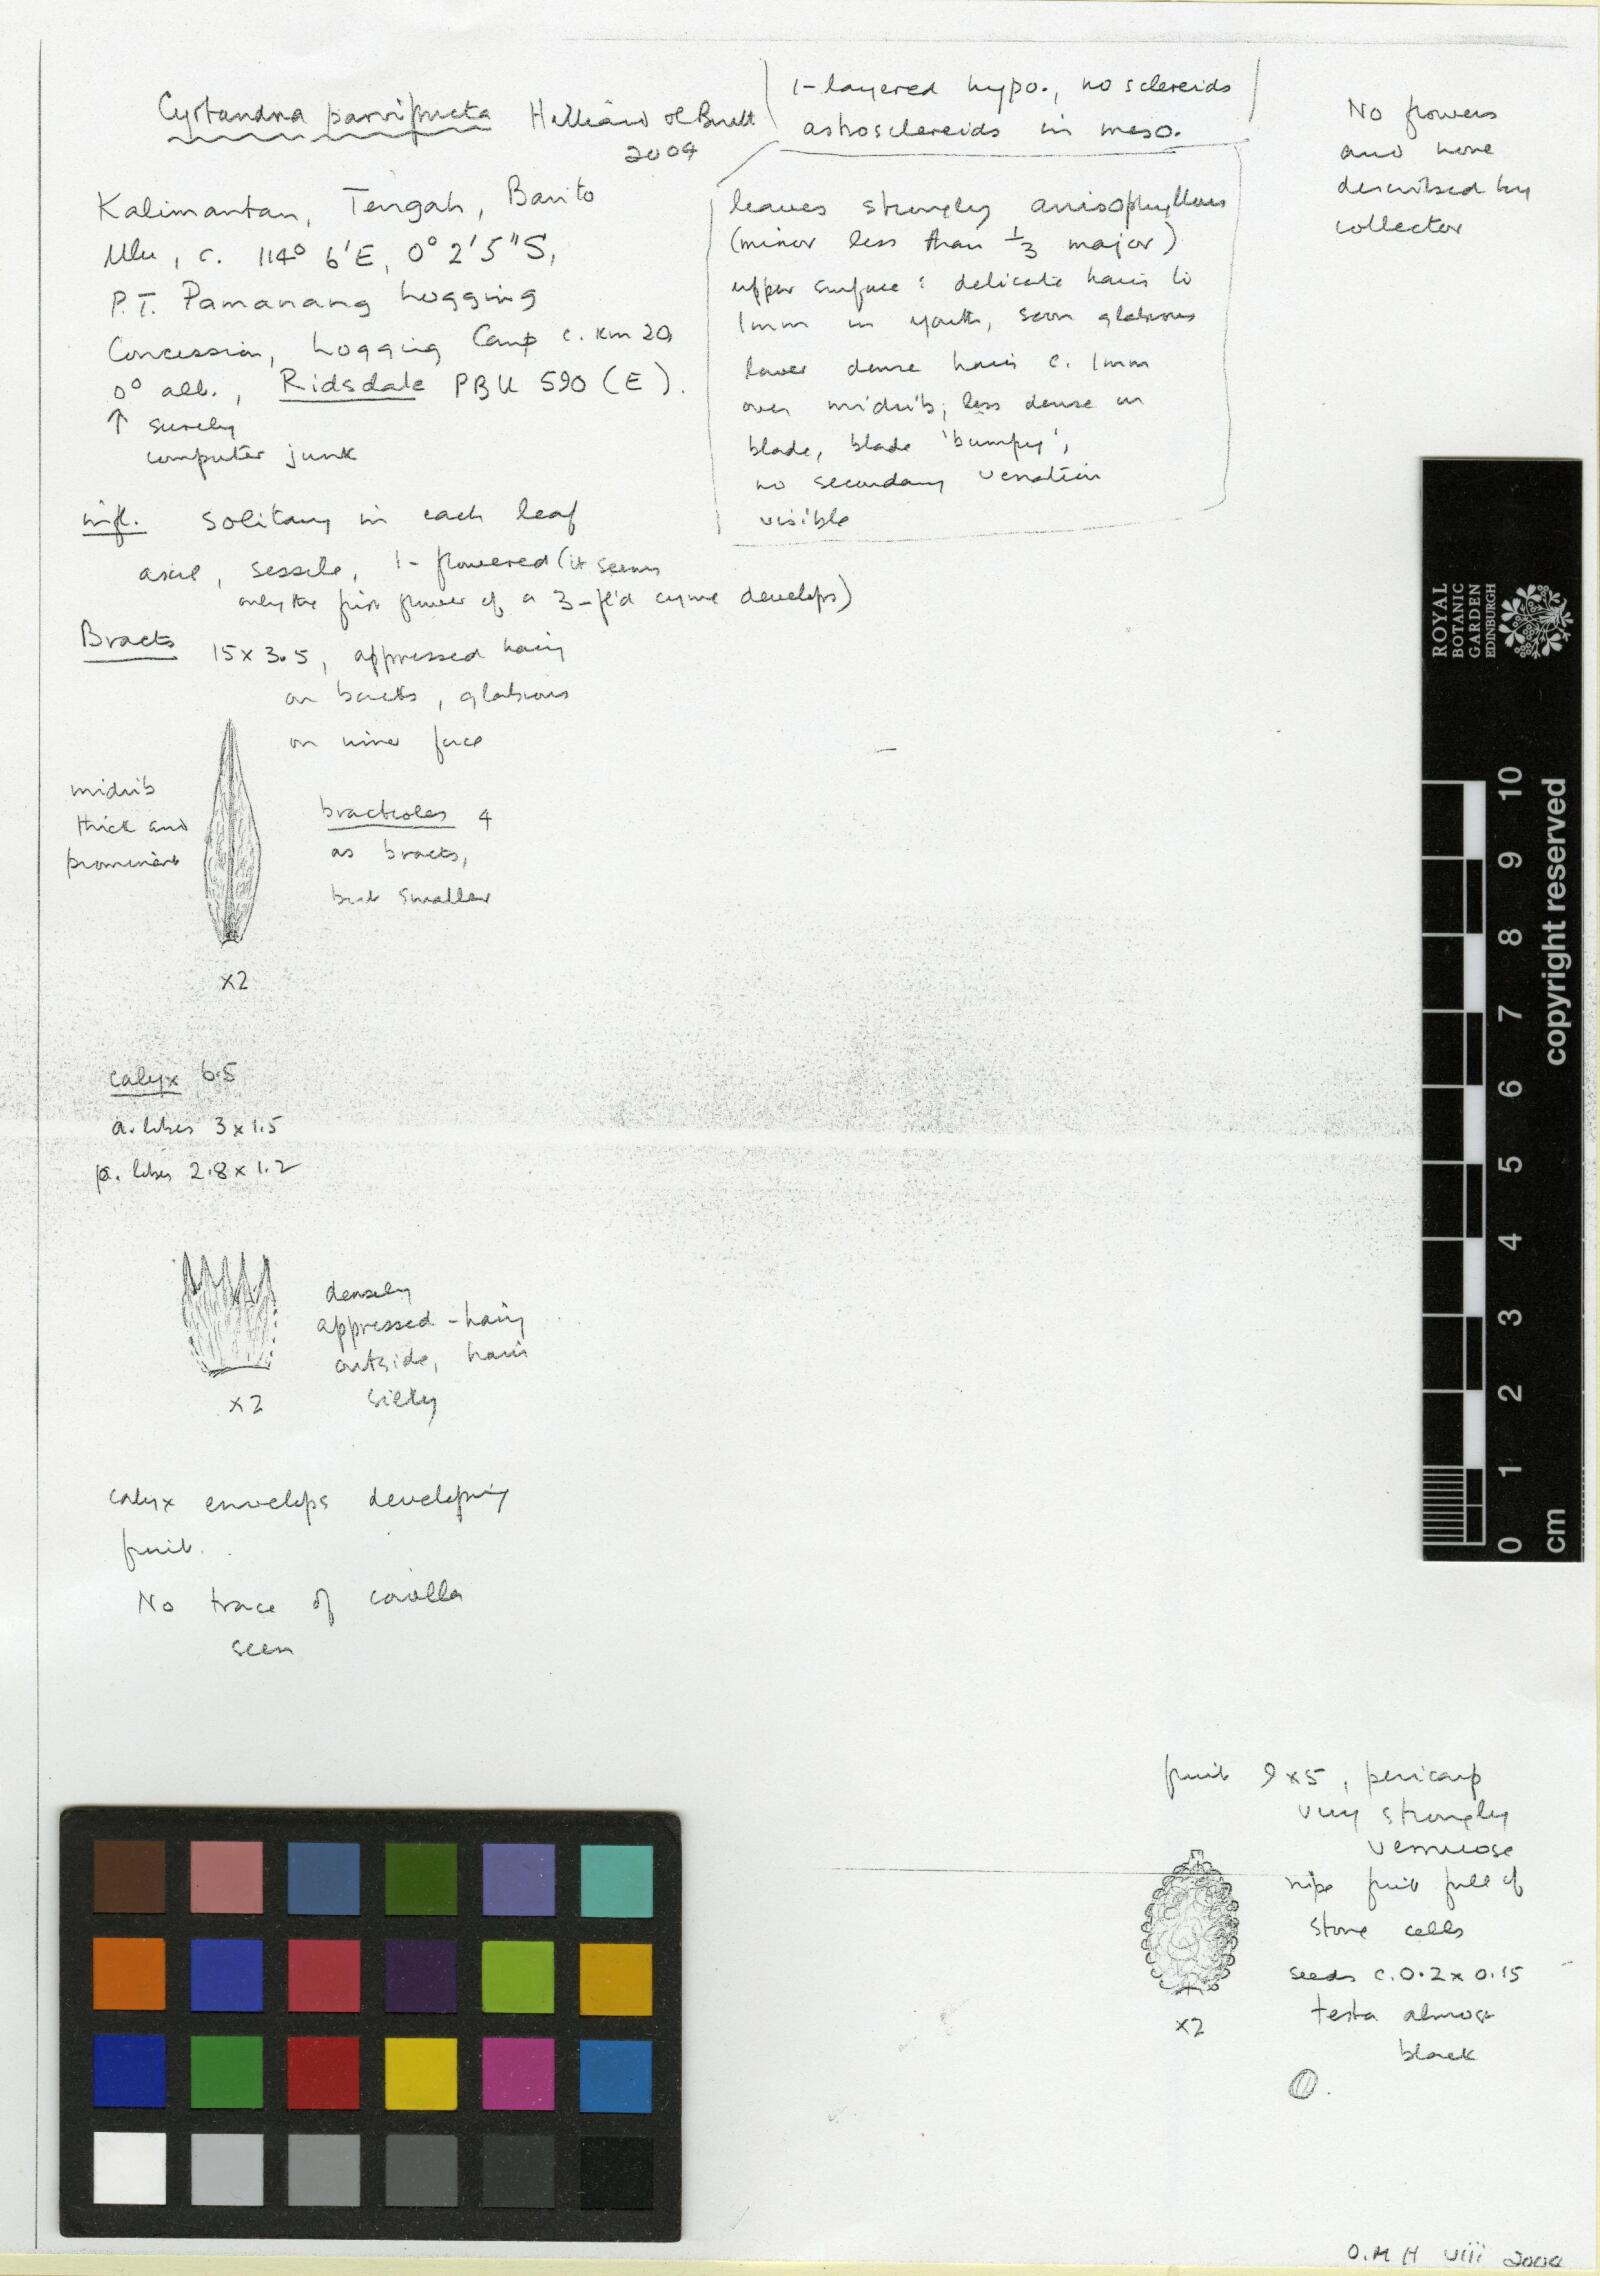 Cyrtandra parvifructa Hilliard & Burtt
2004
1-layered hypo., no sclereids
astrosclereids in meso.
No flowers
and none
described by
collector
Kalimantan, Tengah, Barito
Ulu, c. 114° 6'E, 0° 2'5"S,
P.T. Pamanang Logging
Concession, Logging Camp c. Km 20,
0° alt., Ridsdale PBU 590 (E).
↑ surely
computer junk
leaves strongly anisophyllous
(minor less than 1/3 major)
upper surface: delicate hairs to
1mm in youth, soon glabrous
lower dense hairs c. 1mm
over midrib; less dense on
blade, blade 'bumpy',
no secondary venation
visible
infl. solitary in each leaf
axil, sessile, 1-flowered (it seems
only the first flower of a 3-fl'd cyme develops)
Bracts 15x3.5, appressed hairy
on backs, glabrous
on inner face
midrib
thick and
prominent
bracteoles 4
as bracts,
but smaller
x2
calyx 6.5
a. lobes 3x1.5
p. lobes 2.8x1.2
densely
appressed-hairy
outside, hairs
silky
x2
calyx envelops developing
fruit.
No trace of corolla
seen
fruit 9x5, pericarp
very strongly
verrucose
ripe fruit full of
stone cells
seeds c. 0.2x0.15
testa almost
black
x2
O.M H viii
ROYAL
BOTANIC
GARDEN
EDINBURGH
copyright reserved
10
9
8
7
6
5
4
3
2
1
0
cm